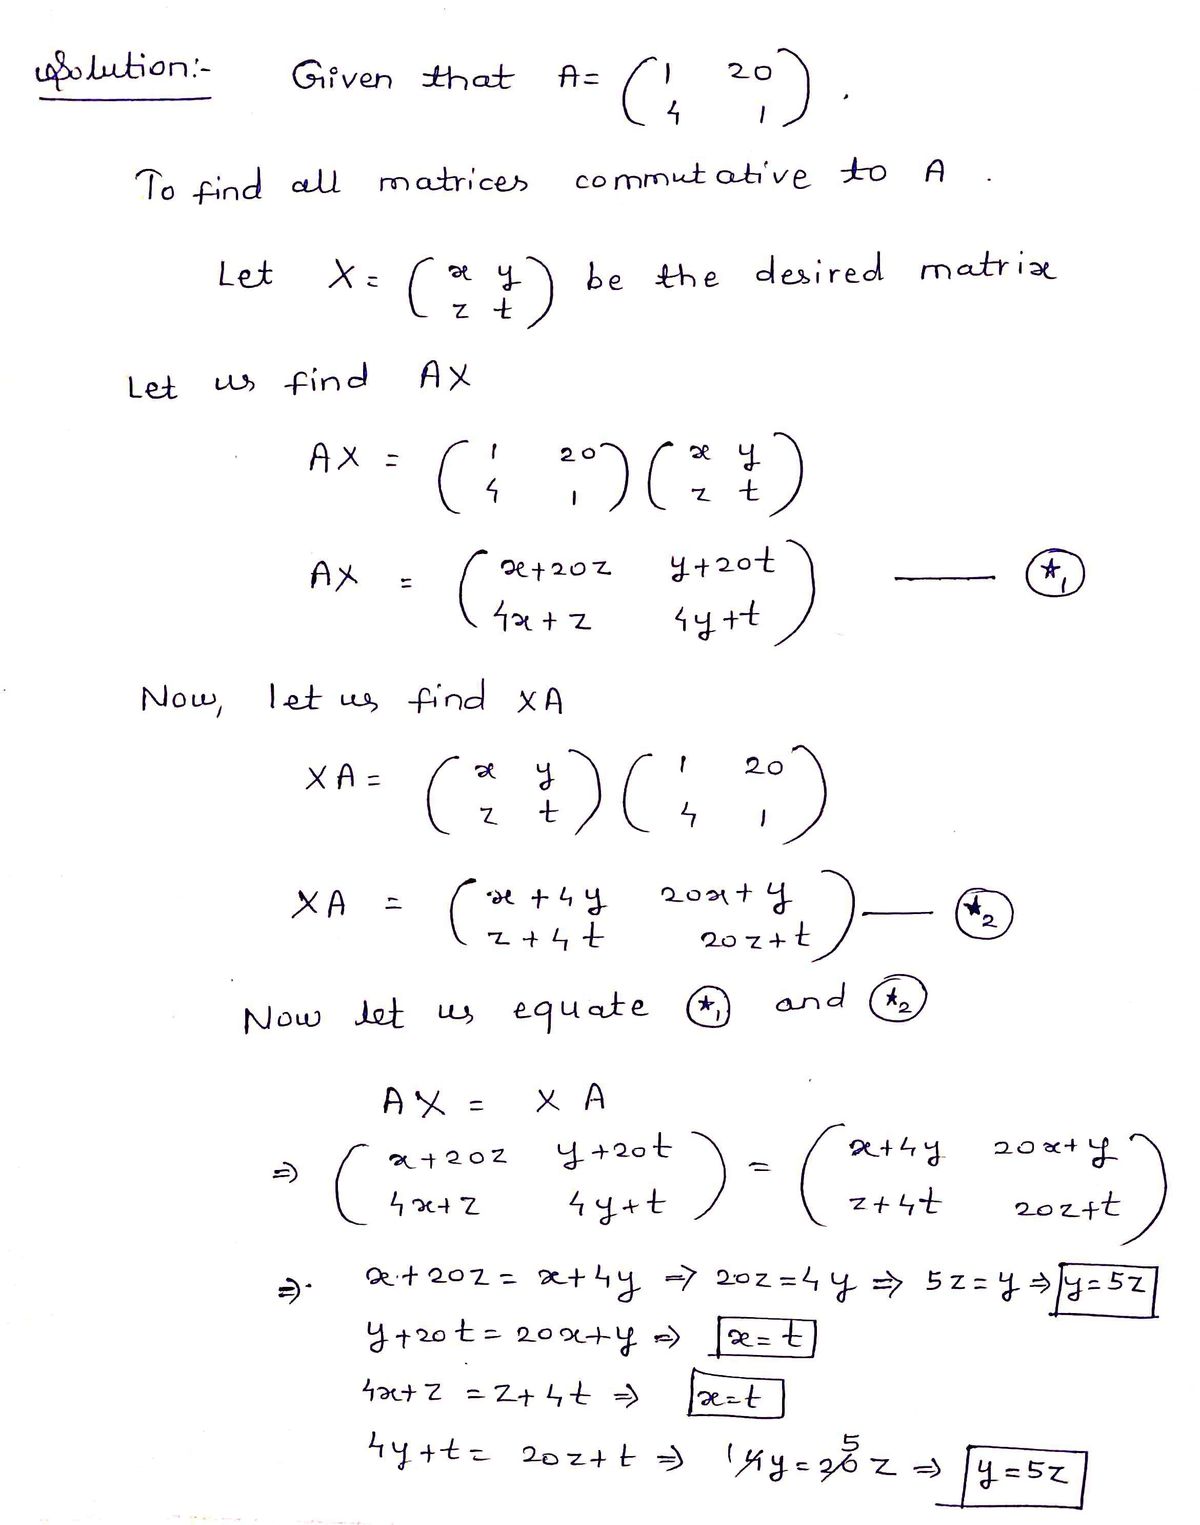 Solution:- Given that A = ( 1 20 ) .
4 1
To find all matrices commutative to A .
Let X = ( x y ) be the desired matrix
z t
Let us find AX
AX = ( 1 20 ) ( x y )
4 1 z t
AX = ( x+20z y+20t ) —— ★1
4x+z 4y+t
Now, let us find XA
XA = ( x y ) ( 1 20 )
z t 4 1
XA = ( x+4y 20x+y ) —— ★2
z+4t 20z+t
Now let us equate ★1 and ★2
AX = XA
⇒ ( x+20z y+20t ) = ( x+4y 20x+y )
4x+z 4y+t z+4t 20z+t
⇒ x+20z = x+4y ⇒ 20z=4y ⇒ 5z=y ⇒ y=5z
y+20t = 20x+y ⇒ x=t
4x+z = z+4t ⇒ x=t
4y+t = 20z+t ⇒ 1 4y = 20 5 z ⇒ y=5z